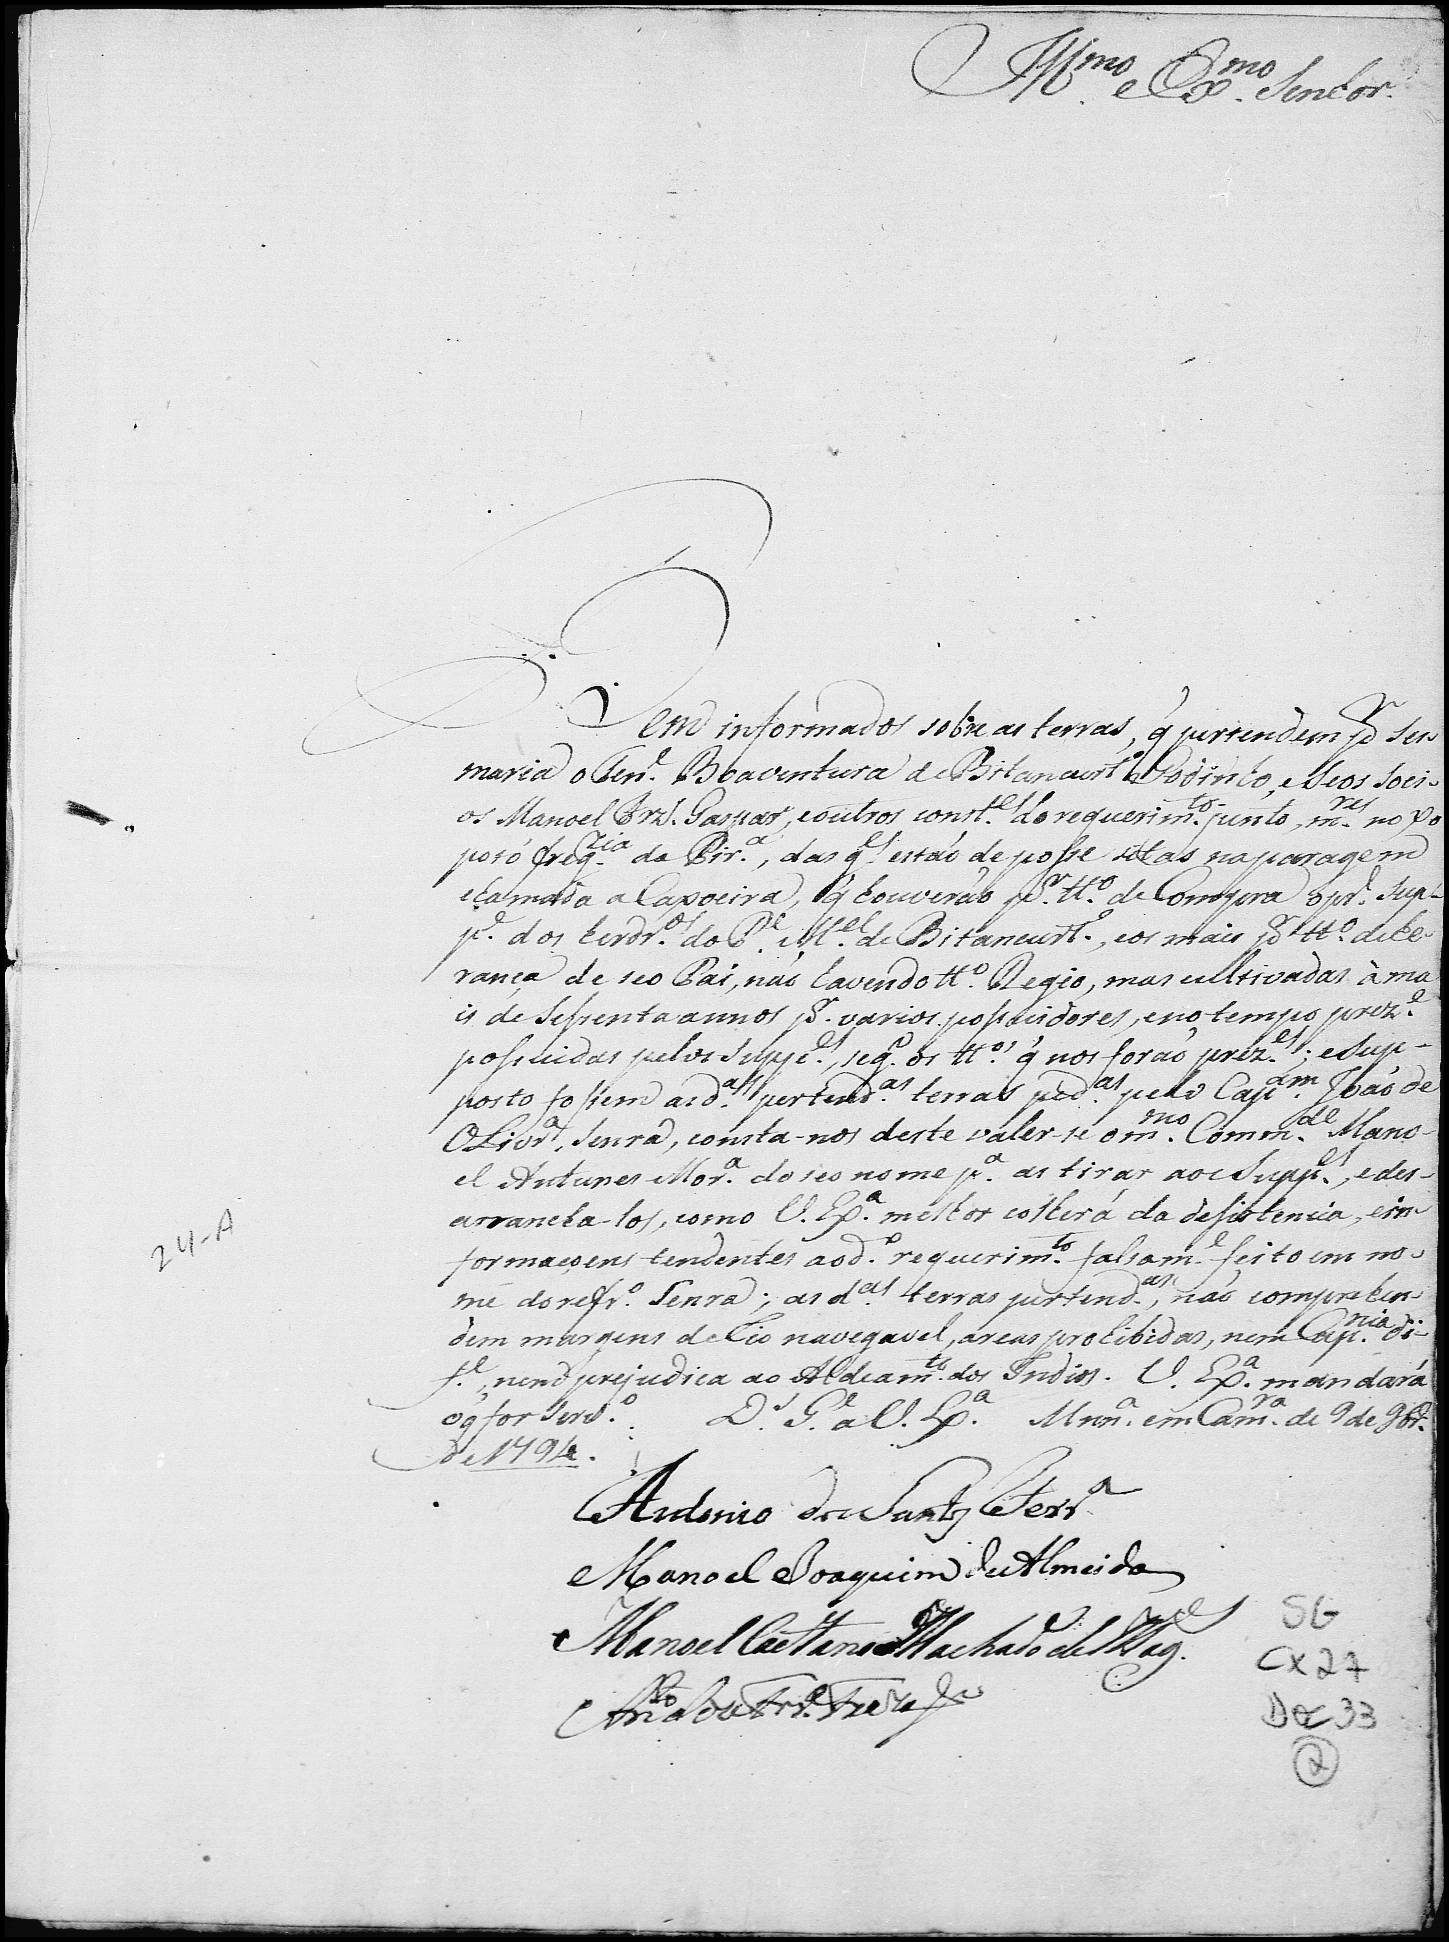 Ill.mo e Ex.mo Senhor.
Bem informados sobre as terras, q̃ pertendem p.r Ses-
maria o Ten.e Boaventura de Bitancurt e Godinho, e seos Soci-
os Manoel Frz. Gaspar, e outros const.es do requerim.to junto, m.res no Xo
potó freg.zia da Pir.a, das q.es estáó de posse  na paragem
chamada a Capoeira, q̃ houveráo p.r tt.o de Compra o pr.l Sup-
p.e dos herdr.os do P.e M.el de Bitancurt.e, e os mais p.r tt.o de he-
rança de seo Pai, náo havendo tt.o Regio, mas cultivadas à ma
is de Sessenta annos p.r varios possuidores, e no tempo prez.e
possuidas pelos Supp.es, seg.o os tt.os q̃ nos foráo prez.es; e Sup-
posto fossem as d.as pertend.as terras ped.as pelo Cap.am Joáo de
Olivr.a Senra, consta-nos deste valer-se o m.mo Comm.de Mano-
el Antunes Mor.a do seo nome p.a as tirar aos Supp.es, e des-
arrancha-los, como V. Ex.a melhor colherá da desistencia, e in-
formaçoens tendentes ao d.o requerim.to falsam.e feito em no-
me do refr.o Senra; as d.as terras pertend.as, náo comprehen-
dem margens de Rio navegavel, areas prohibidas, nem Cap.nia di-
f.e, nem prejudica ao Aldeam.to dos Indios. V. Ex.a mandará
o q̃ for Serv.o D.s G.e a V. Ex.a Mnn.a em Cam.ra de 9 de 9br.o
de 1794.
Antonio dos Santos Ferr.a
Manoel Joaquim de Almeida
Manoel Caetano Machado de Mag.es
24-A
SG
CX 27
DOC 33
2